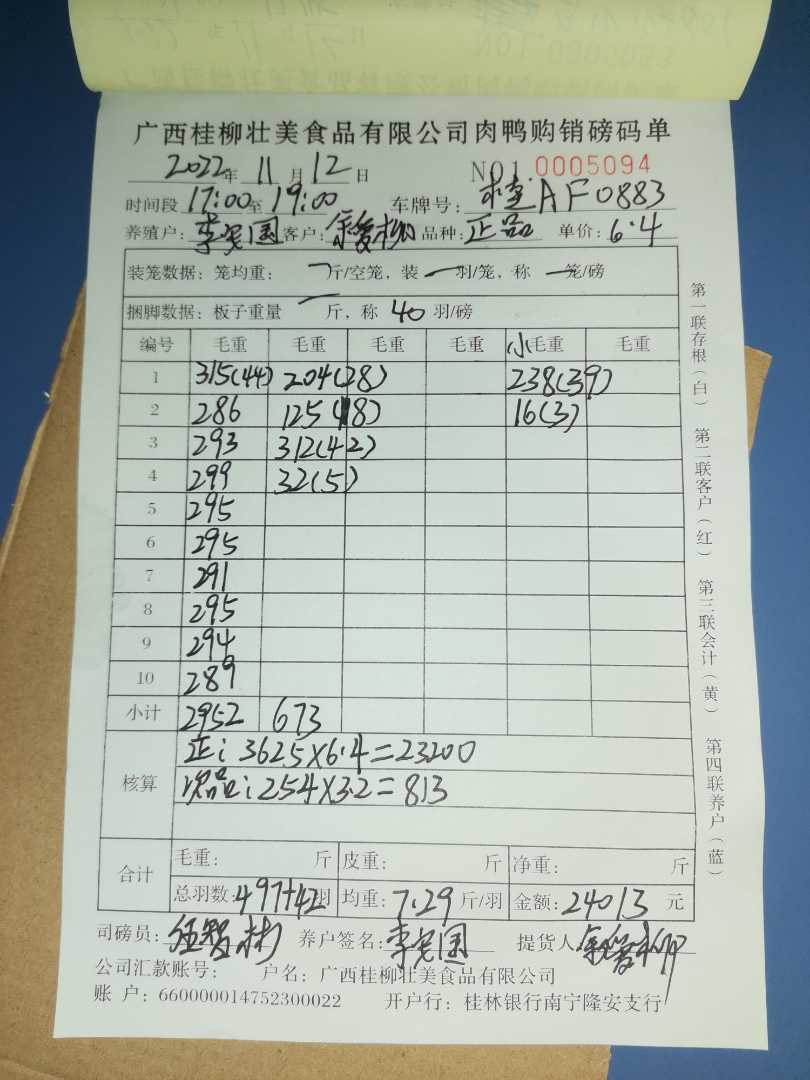 广西桂柳壮美食品有限公司肉鸭购销磅码单
2022年 11月 12日 NO1.0005094
时间段 17:00 至 19:00 车牌号: 桂AF0883
养殖户: 客户: 品种: 正品 单价: 6.4
装笼数据: 笼均重: 斤/空笼, 装 羽/笼, 称 笼/磅
捆脚数据: 板子重量 斤, 称 40 羽/磅
编号 毛重 毛重 毛重 毛重 小毛重 毛重
1 315(44) 204(28) 238(39)
2 286 125(18) 16(3)
3 293 312(42)
4 299 32(5)
5 295
6 295
7 291
8 295
9 294
10 289
小计 2952 673
核算 正: 3625×6.4=23200
次品: 254×3.2=813
合计 毛重: 斤 皮重: 斤 净重: 斤
总羽数: 497+42羽 均重: 7.29斤/羽 金额: 24013元
司磅员: 养户签名: 提货人:
公司汇款账号: 户名: 广西桂柳壮美食品有限公司
账 户: 660000014752300022 开户行: 桂林银行南宁隆安支行
第一联存根(白) 第二联客户(红) 第三联会计(黄) 第四联养户(蓝)